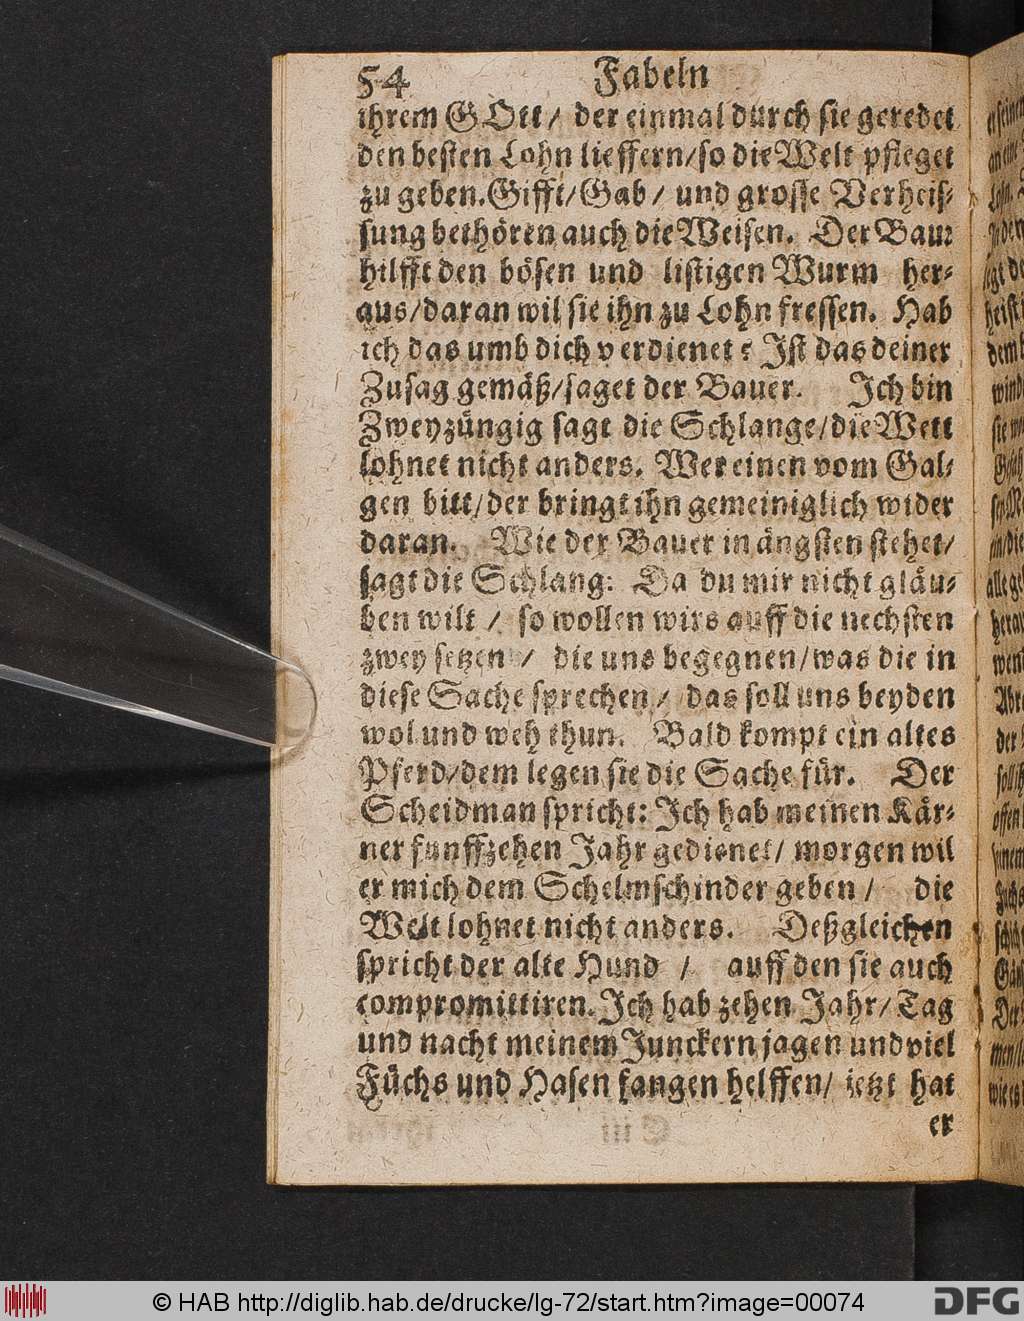 54 Fabeln
ihrem GOtt / der einmal durch sie geredet
den besten Lohn lieffern/so die Welt pfleget
zu geben. Gifft/Gab / und grosse Verheis-
sung bethören auch die Weisen. Der Baur
hilfft den bösen und listigen Wurm her-
aus/daran wil sie ihn zu Lohn fressen. Hab
ich das umb dich verdienet? Ist das deiner
Zusag gemäß/saget der Bauer. Ich bin
Zweyzüngig sagt die Schlange/die Welt
lohnet nicht anders. Wer einen vom Gal-
gen bitt/der bringt ihn gemeiniglich wider
daran. Wie der Bauer in ängsten stehet/
sagt die Schlang: Da du mir nicht gläu-
ben wilt / so wollen wirs auff die nechsten
zwey setzen / die uns begegnen/was die in
diese Sache sprechen / das soll uns beyden
wol und weh thun. Bald kompt ein altes
Pferd/dem legen sie die Sache für. Der
Scheidman spricht: Ich hab meinen Kär-
ner funffzehen Jahr gedienet/ morgen wil
er mich dem Schelmschinder geben / die
Welt lohnet nicht anders. Deßgleichen
spricht der alte Hund / auff den sie auch
compromittiren. Ich hab zehen Jahr/Tag
und nacht meinem Junckern jagen und viel
Füchs und Hasen fangen helffen/ jetzt hat
er
© HAB http://diglib.hab.de/drucke/lg-72/start.htm?image=00074
DFG